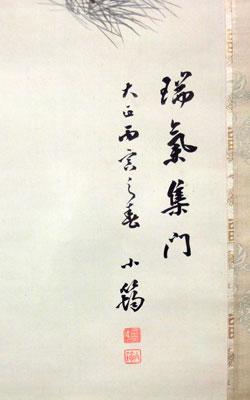 瑞氣集门
大正丙寅之春 小鷗